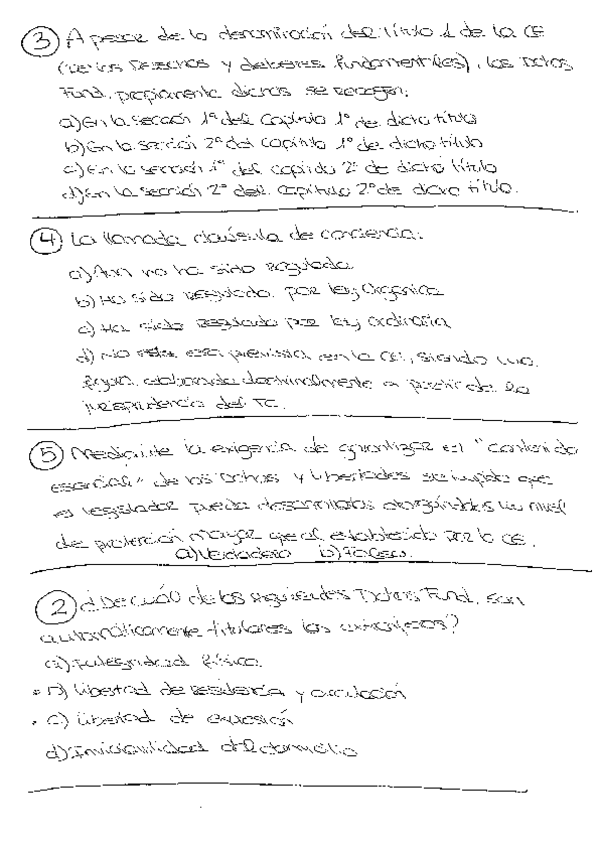 3) A pesar de la denominación del título 1 de la CE
(de los Derechos y deberes fundamentales), los Dchos
Fund. propiamente dichos se recogen:
a) En la sección 1ª del capítulo 1º de dicho título
b) En la sección 2ª del capítulo 1º de dicho título
c) En la sección 1ª del capítulo 2º de dicho título
d) En la sección 2ª del capítulo 2º de dicho título.
4) La llamada cláusula de conciencia:
a) Aun no ha sido regulada
b) Ha sido regulada por ley Orgánica
c) Ha sido regulada por ley ordinaria
d) No está prevista en la CE, siendo una
elaborada doctrinalmente a partir de la
jurisprudencia del TC.
5) Mediante la exigencia de garantizar el "contenido
esencial" de los Dchos y libertades se impide que
el legislador pueda desarrollarlos otorgándoles un nivel
de protección mayor que el establecido por la CE.
a) Verdadero b) Falso.
2) ¿De cuál de los siguientes Dchos Fund. son
automáticamente titulares los extranjeros?
a) Integridad física.
• b) libertad de residencia y circulación
• c) libertad de expresión
d) Inviolabilidad del domicilio